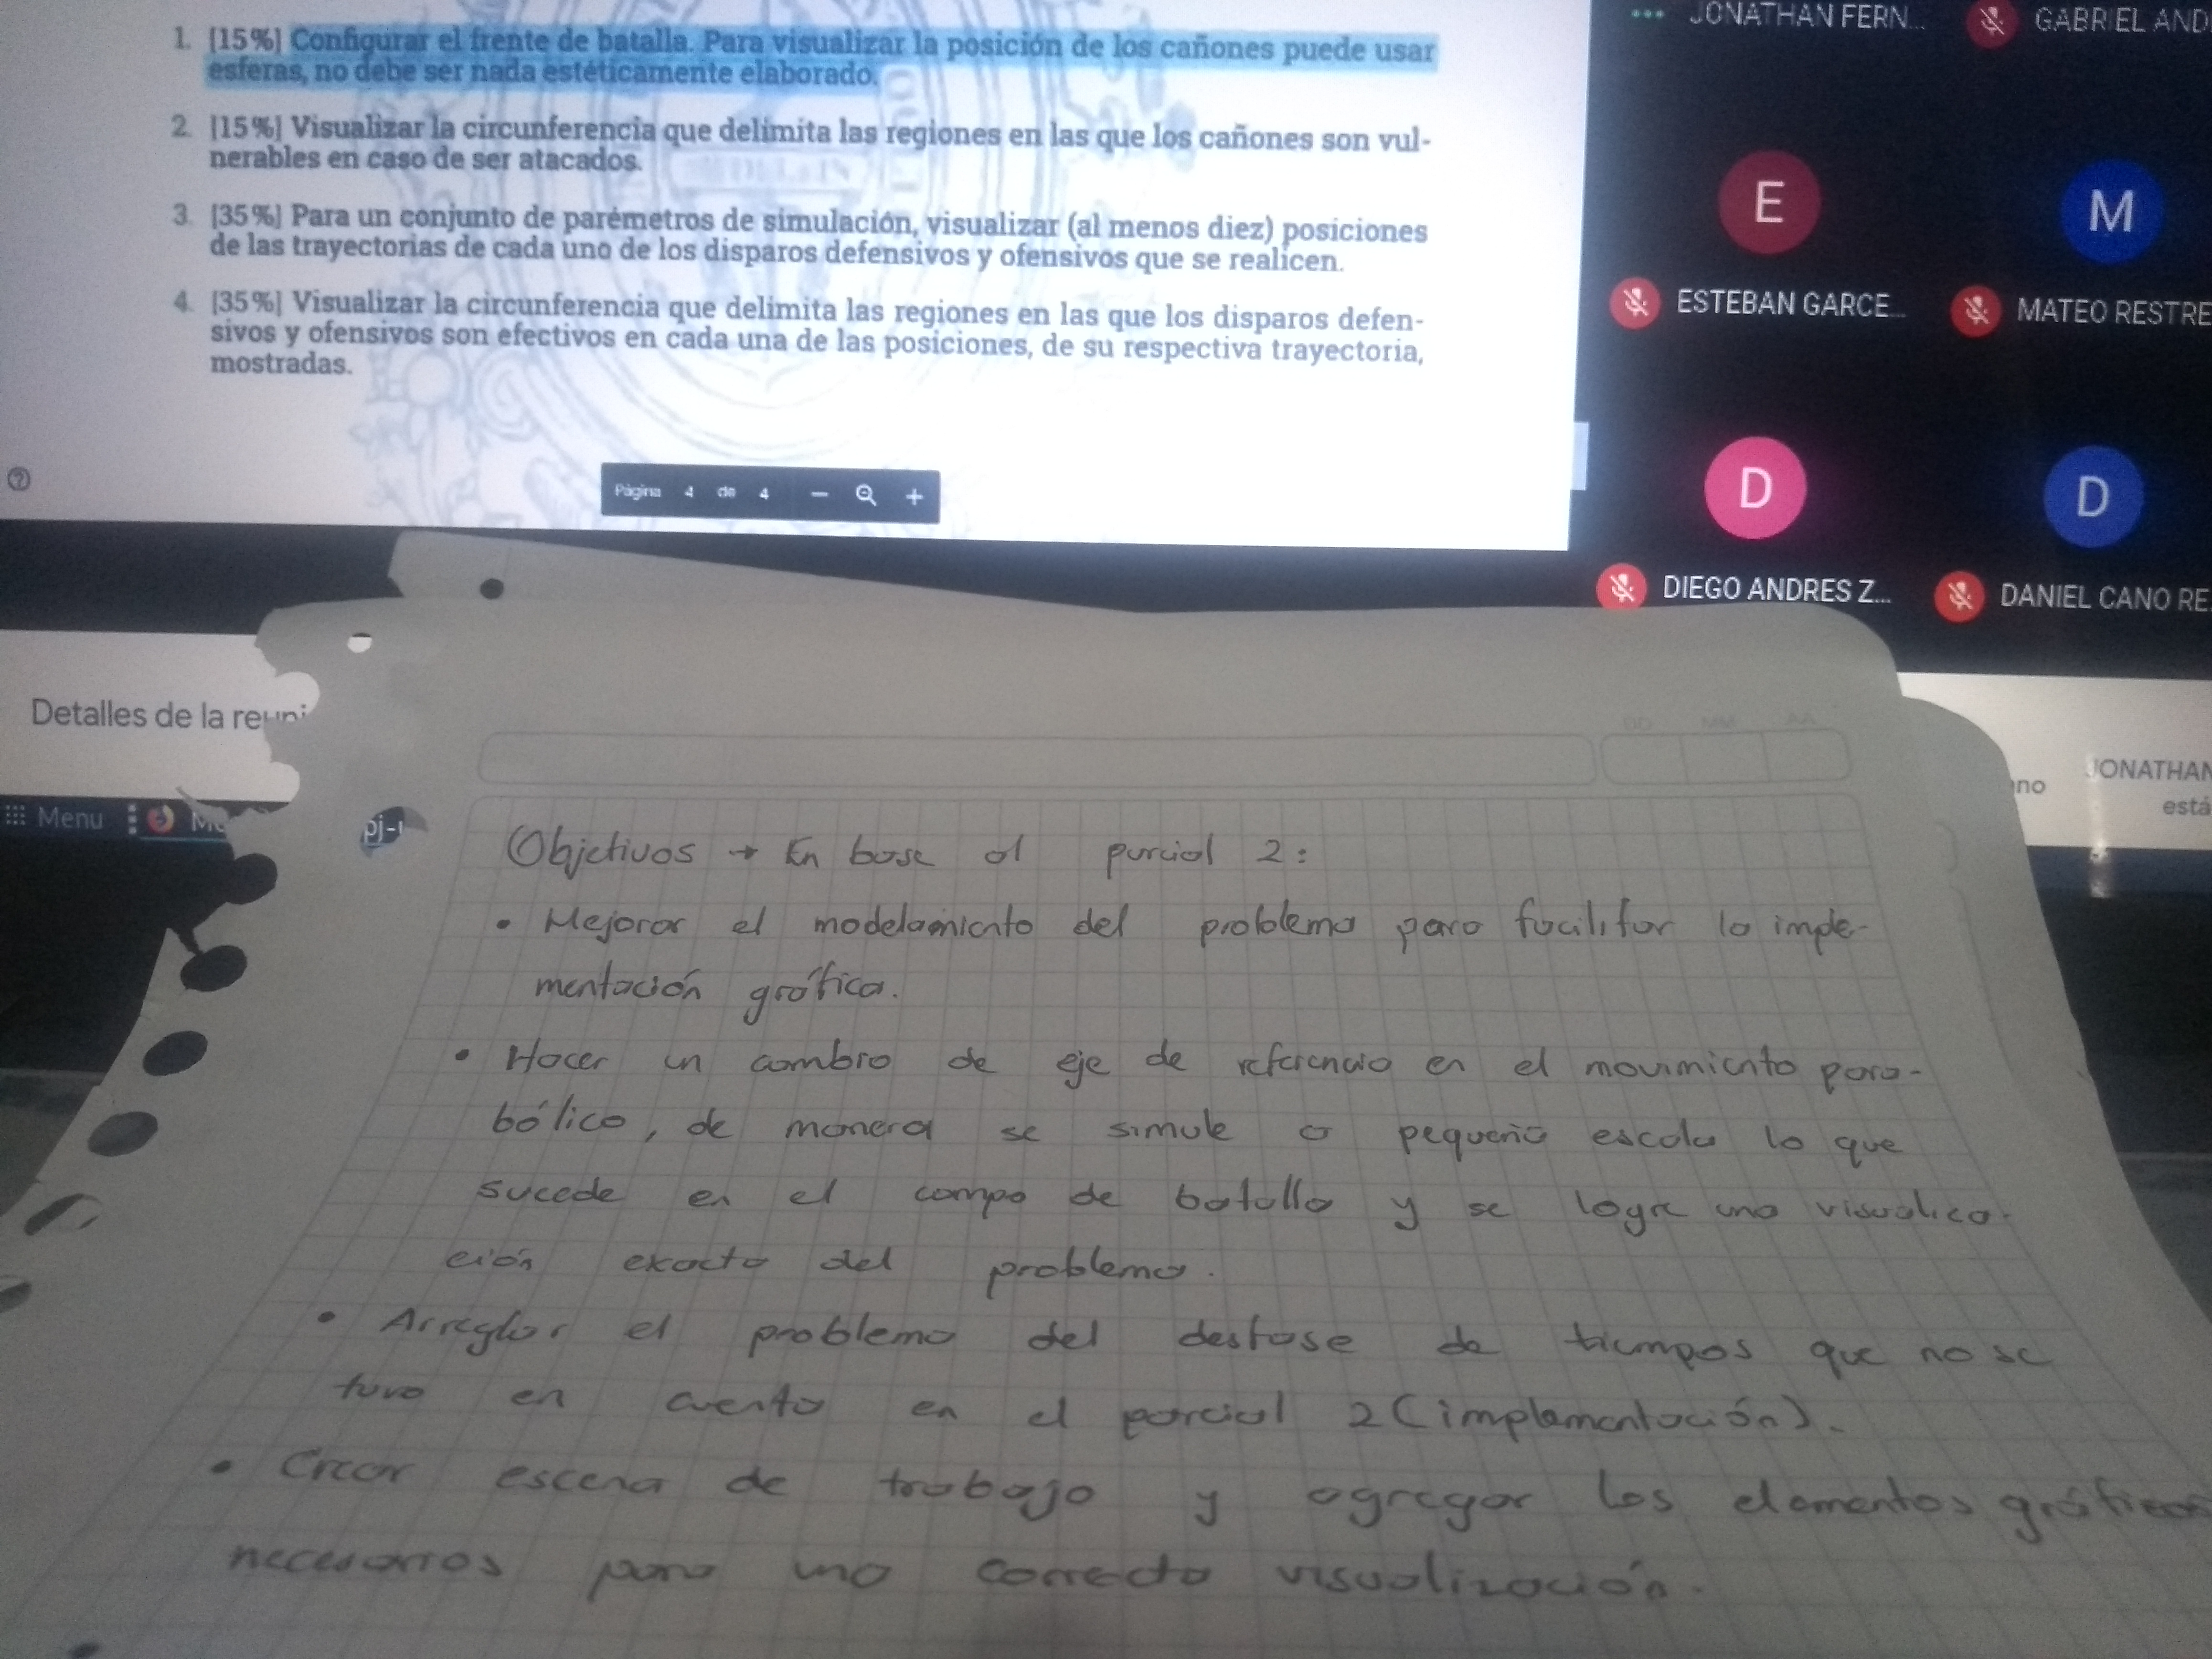 1. [15%] Configurar el frente de batalla. Para visualizar la posición de los cañones puede usar
esferas, no debe ser nada estéticamente elaborado.
2. [15%] Visualizar la circunferencia que delimita las regiones en las que los cañones son vul-
nerables en caso de ser atacados.
3. [35%] Para un conjunto de parémetros de simulación, visualizar (al menos diez) posiciones
de las trayectorias de cada uno de los disparos defensivos y ofensivos que se realicen.
4. [35%] Visualizar la circunferencia que delimita las regiones en las que los disparos defen-
sivos y ofensivos son efectivos en cada una de las posiciones, de su respectiva trayectoria,
mostradas.
Página 4 de 4
JONATHAN FERN...
GABRIEL AND
E
M
ESTEBAN GARCE...
MATEO RESTRE
D
D
DIEGO ANDRES Z...
DANIEL CANO RE
Detalles de la reuni
no
JONATHAN
está
Menu
DD MM AA
Objetivos → En base al parcial 2:
• Mejorar el modelamiento del problema para facilitar la imple-
mentación gráfica.
• Hacer un cambio de eje de referencia en el movimiento para-
bólico, de manera se simule a pequeña escala lo que
sucede en el campo de batalla y se logre una visualiza-
ción exacta del problema.
• Arreglar el problema del desfase de tiempos que no se
tuvo en cuenta en el parcial 2 (implementación).
• Crear escena de trabajo y agregar los elementos gráficos
necesarios para una correcta visualización.